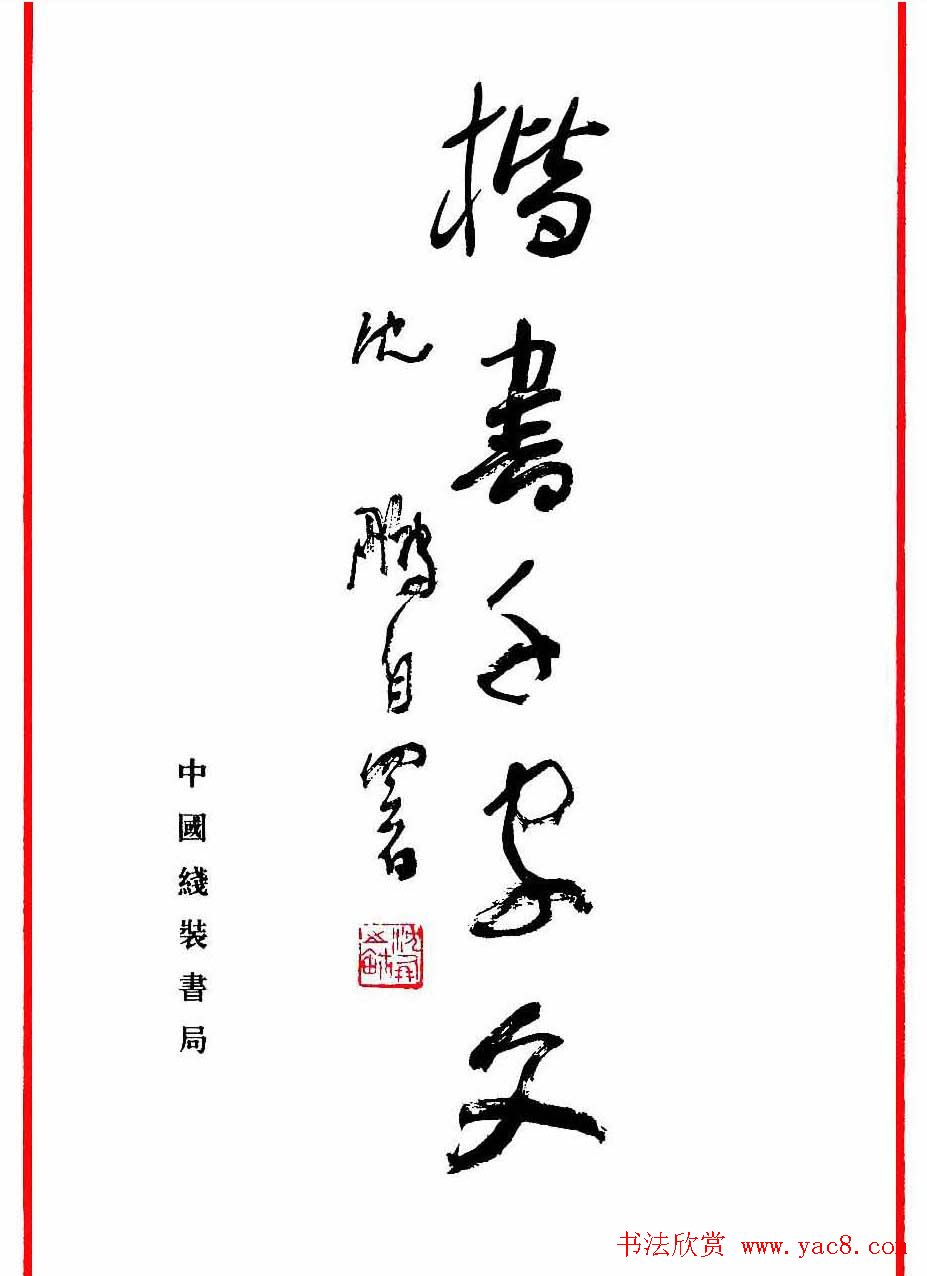 楷書千字文
沈鵬自署
中國綫裝書局
书法欣赏 www.yac8.com